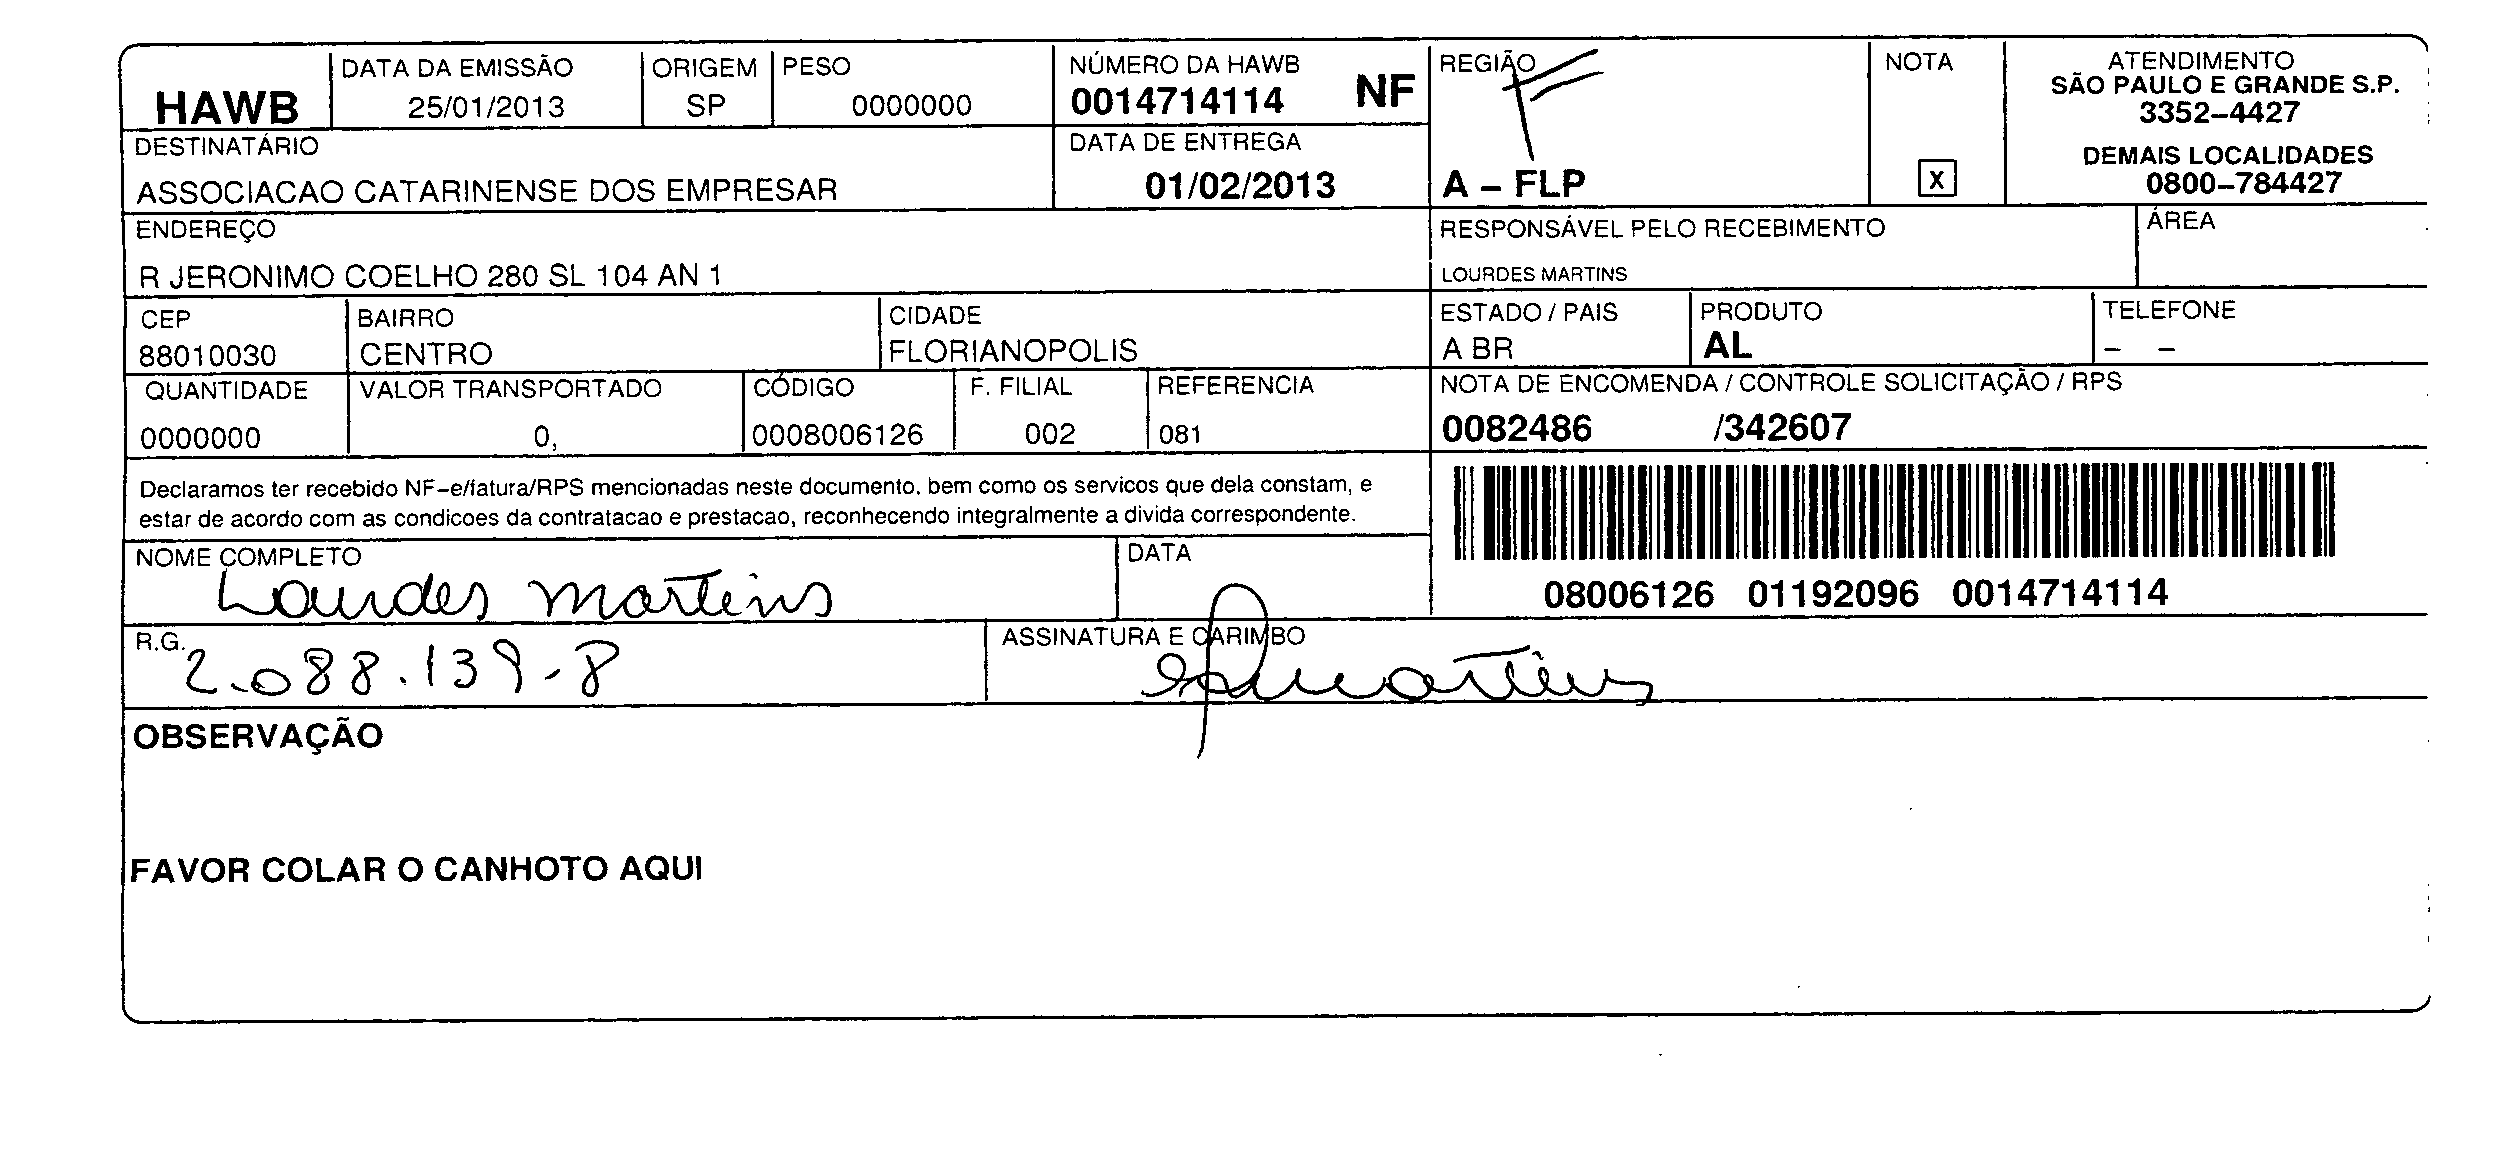 HAWB
DATA DA EMISSÃO
25/01/2013
ORIGEM
SP
PESO
0000000
NÚMERO DA HAWB
0014714114 NF
REGIÃO
A – FLP
NOTA
X
ATENDIMENTO
SÃO PAULO E GRANDE S.P.
3352–4427
DEMAIS LOCALIDADES
0800–784427
DESTINATÁRIO
ASSOCIACAO CATARINENSE DOS EMPRESAR
DATA DE ENTREGA
01/02/2013
ENDEREÇO
R JERONIMO COELHO 280 SL 104 AN 1
RESPONSÁVEL PELO RECEBIMENTO
LOURDES MARTINS
ÁREA
CEP
88010030
BAIRRO
CENTRO
CIDADE
FLORIANOPOLIS
ESTADO / PAIS
A BR
PRODUTO
AL
TELEFONE
– –
QUANTIDADE
0000000
VALOR TRANSPORTADO
0,
CÓDIGO
0008006126
F. FILIAL
002
REFERENCIA
081
NOTA DE ENCOMENDA / CONTROLE SOLICITAÇÃO / RPS
0082486 /342607
Declaramos ter recebido NF–e/fatura/RPS mencionadas neste documento, bem como os servicos que dela constam, e
estar de acordo com as condicoes da contratacao e prestacao, reconhecendo integralmente a divida correspondente.
08006126 01192096 0014714114
NOME COMPLETO
Lourdes Martins
DATA
R.G.
2.088.139-8
ASSINATURA E CARIMBO
OBSERVAÇÃO
FAVOR COLAR O CANHOTO AQUI